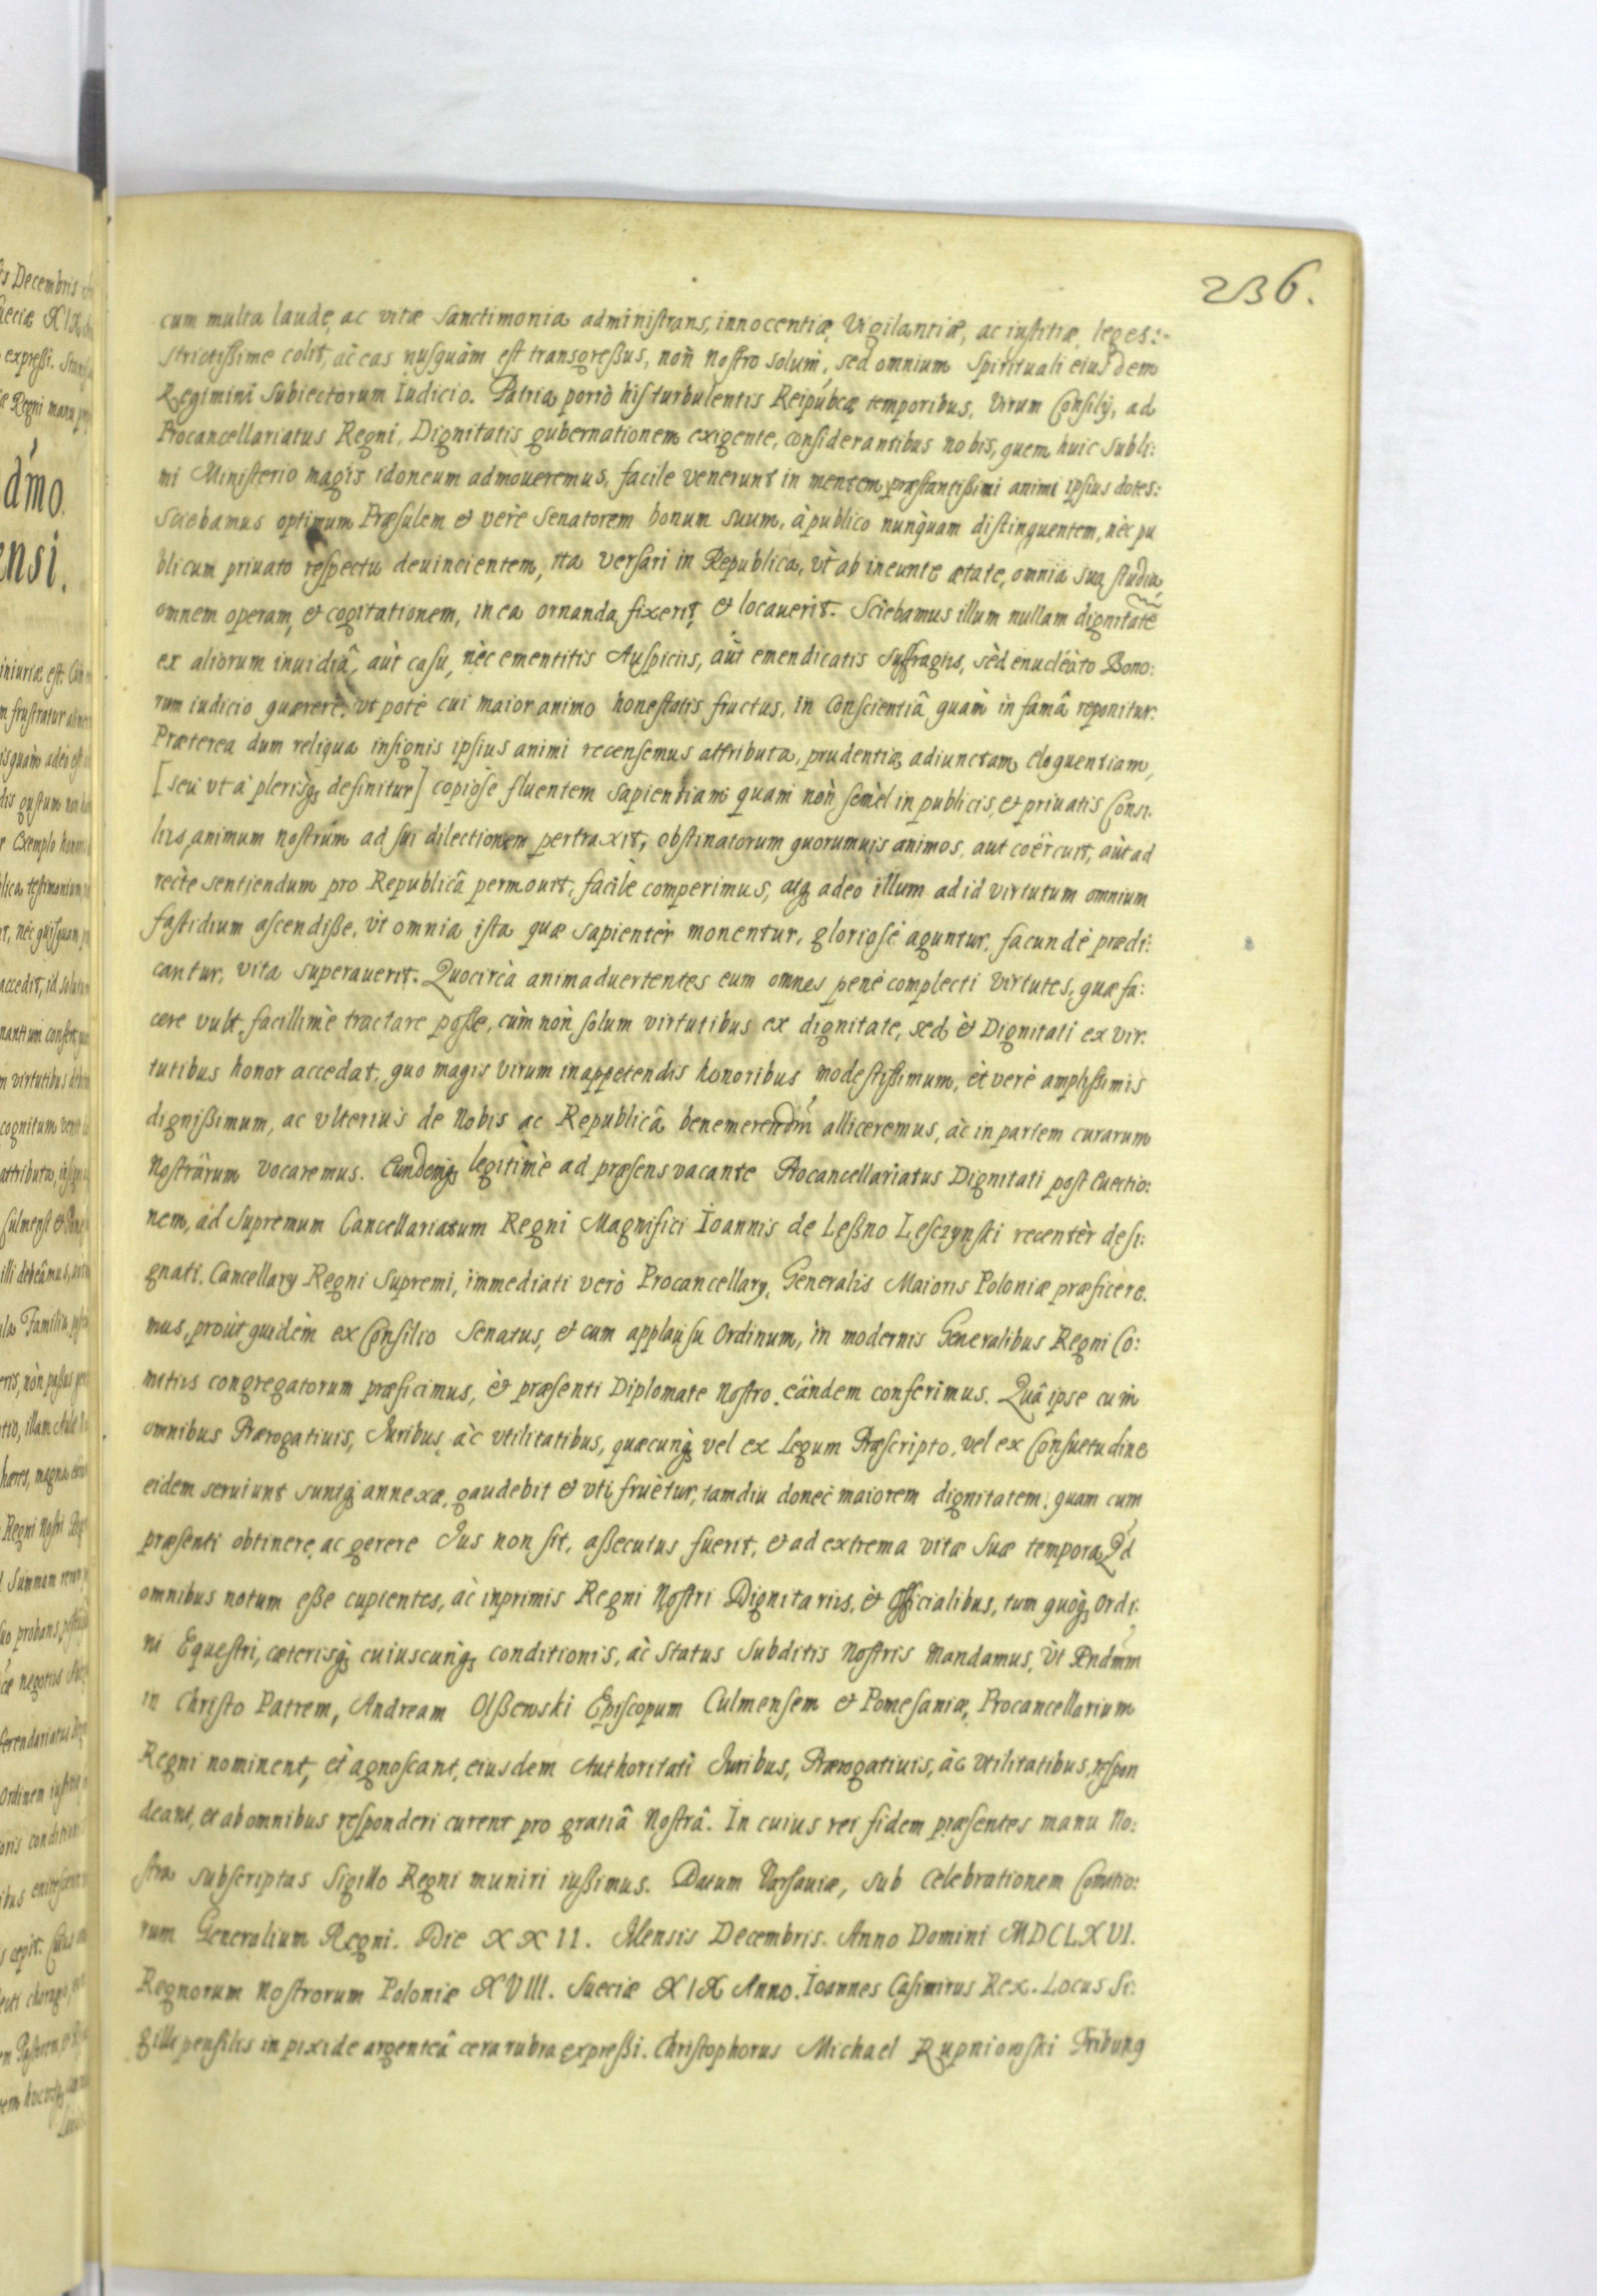 236.
cum multa laude, ac vitæ Sanctimonia administrans, innocentiæ, Vigilantiæ, ac iustitiæ, leges:
strictißime colit, àc eas nusquàm est transgreßus, nòn nostro solùm, sed omnium Spirituali eiusdem
Regimini Subiectorum Iudicio. Patria porrò his turbulentis Reipubcæ temporibus, Virum Consilÿ, ad
Procancellariatus Regni, Dignitatis gubernationem exigente, considerantibus nobis, quem huic subli:
mi Ministerio magis idoneum admoueremus, facile venerunt in mentem præstantißimi animi ipsius dotes:
Sciebamus optimum Præsulem & verè Senatorem bonum suum, à publico nunquam distinguentem, nèc pu
blicum priuato respectu deuincientem, ita versari in Republica, vt ab ineunte ætate, omnia sua studia,
omnem operam, & cogitationem, in ea ornanda fixerit, & locauerit. Sciebamus illum nullam dignitatē
ex aliorum inuidiâ, aùt casu, nèc ementitis Auspiciis, aùt emendicatis suffragiis, sèd enucleàto Bono:
rum iudicio quærere, vt potè cui maior animo honestatis fructus, in Conscientiâ quàm in famâ reponitur.
Præterea dum reliqua insignis ipsius animi recensemus attributa, prudentiæ adiunctam eloquentiam,
[seu vt à plerisq; definitur] copiòse fluentem sapientiam quam nòn semèl in publicis, & priuatis Consi.
liis, animum nostrum ad sui dilectionem pertraxit, obstinatorum quorumuis animos, aut coërcuit, aùt ad
rectè sentiendum pro Republicâ permouit, facilè comperimus, atq; adeo illum ad id virtutum omnium
fastidium ascendiße, vt omnia ista quæ sapientèr monentur, gloriosè aguntur, facundè prædi:
cantur, vita superauerit. Quocircà animaduertentes eum omnes penè complecti virtutes, quæ fa:
cere vult, facillimè tractare poße, cùm nòn solum virtutibus ex dignitate, sed & Dignitati ex vir:
tutibus honor accedat, quo magis virum in appetendis honoribus modestißimum, èt verè amplißimis
dignißimum, ac vlterius de Nobis ac Republicâ benemerendm̃ alliceremus, àc in partem curarum
Nostrarum vocaremus. Eundemq; legitimè ad præsens vacante Procancellariatus Dignitati post Euectio:
nem, ad Supremum Cancellariatum Regni Magnifici Ioannis de Leßno Lesczynski recentèr desi:
gnati. Cancellarÿ Regni Supremi, immediati verò Procancellarÿ, Generalis Maioris Poloniæ præficere.
mus, proùt quidèm ex Consilio Senatus, et cum applausu Ordinum, in modernis Generalibus Regni Co:
mitiis congregatorum præficimus, & præsenti Diplomate Nostro eandem conferimus. Quâ ipse cum
omnibus Prærogatiuis, Iuribus àc vtilitatibus, quæcunq; vel ex Legum Præscripto, vel ex Consuetudine
eidem seruiunt suntq; annexæ, gaudebit & vti fruètur, tamdiu donèc maiorem dignitatem, quam cum
præsenti obtinere, ac gerere Ius non sit, aßecutus fuerit, & ad extrema vitæ suæ tempora. Qd
omnibus notum eße cupientes, àc inprimis Regni Nostri Dignitariis, & Officialibus, tum quoq; Ordi:
ni Equestri, cæterisq; cuiuscunq; conditionis, àc Status Subditis Nostris Mandamus, Vt Rndmm
in Christo Patrem, Andream Olßewski Episcopum Culmensem & Pomesaniæ, Procancellarium
Regni nominent, èt agnoscant, eiusdem Authoritati Iuribus, Prærogatiuis, àc vtilitatibus, respon
deant, et ab omnibus responderi curent pro gratiâ Nostrâ. In cuius rei fidem præsentes manu No:
stra subscriptas Sigillo Regni muniri iußimus. Datum Varsauiæ, sub Celebrationem Comitio:
rum Generalium Regni. Die XXII. Mensis Decembris. Anno Domini MDCLXVI.
Regnorum Nostrorum Poloniæ XVIII. Sueciæ XIX Anno. Ioannes Casimirus Rex. Locus Si:
gilli pensilis in pixide argenteâ cera rubra expreßi. Christophorus Michael Rupniowski Tribunq